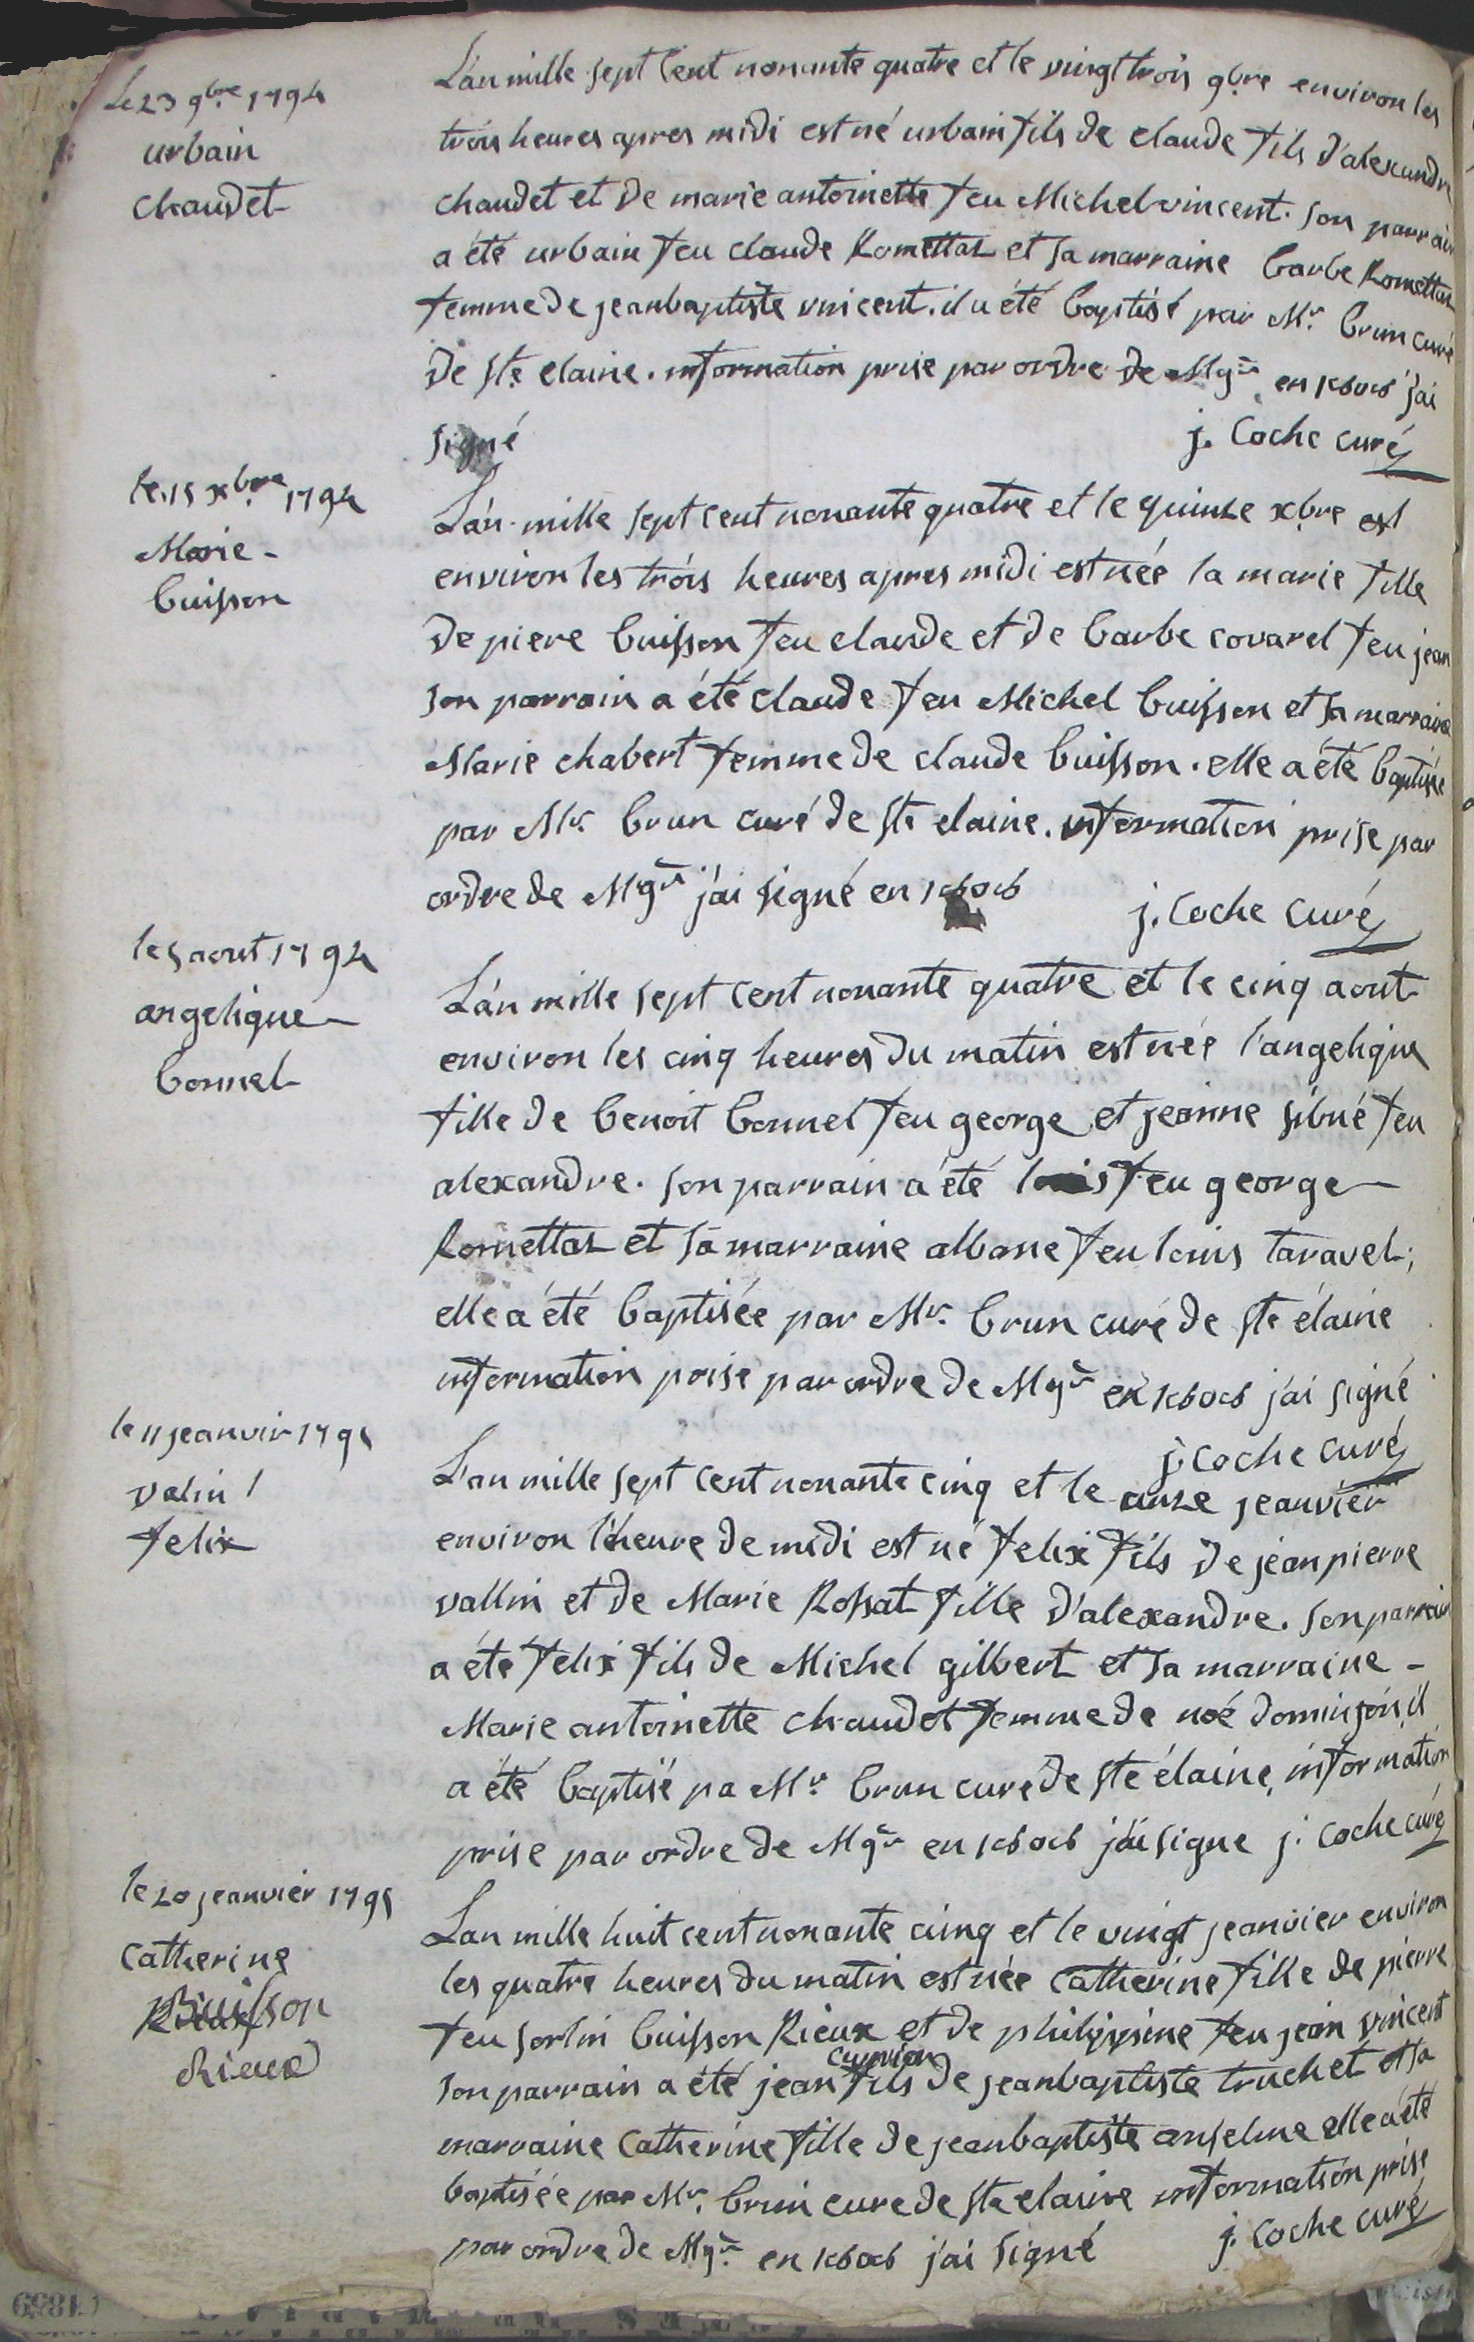 Le 23 9bre 1794
urbain
chaudet
L'an mille sept cent nonante quatre et le vingt trois 9bre environ les
trois heures apres midi est né urbain fils de claude fils d'alexandre
chaudet et de marie antoinette feu Michel vincent. son parrain
a été urbain feu claude Romettaz et sa marraine barbe Romettaz
femme de jeanbaptiste vincent. il a été baptisé par Mr. brun curé
de ste elaine. information prise par ordre de Mgr en j'ai
signé
j. Coche curé
le 15 xbre 1794
Marie
buisson
L'an mille sept cent nonante quatre et le quinze xbre est
environ les trois heures apres midi est née la marie fille
de piere buisson feu claude et de barbe covarel feu jean
son parrain a été claude feu Michel buisson et sa marraine
Marie chabert femme de claude buisson. elle a été baptisée
par Mr. brun curé de ste elaine. information prise par
ordre de Mgr j'ai signé en
j. Coche curé
le 5 aout 1794
angelique
bonnel
L'an mille sept cent nonante quatre et le cinq aout
environ les cinq heures du matin est née l'angelique
fille de benoit bonnel feu george et jeanne sibué feu
alexandre. son parrain a été louis feu george
Romettaz et sa marraine albane feu louis taravel;
elle a été baptisée par Mr. brun curé de ste élaine
information prise par ordre de Mgr en j'ai signé
j. Coche curé
le 11 jeanvir 1795
valin
felix
L'an mille sept cent nonante cinq et le onze jeanvier
environ l'heure de midi est né felix fils de jean pierre
vallin et de Marie Rossat fille d'alexandre. son parrain
a été felix fils de Michel gilbert et sa marraine
Marie antoinette chaudet femme de noé dominjon, il
a été baptisé pa Mr. brun curé de ste élaine, information
prise par ordre de Mgr en j'ai signe j. Coche curé
le 20 jeanvier 1795
Catherine
Buisson
Rieux
Lan mille huit cent nonante cinq et le vingt jeanvier environ
les quatre heures du matin est née catherine fille de pierre
feu sorlin buisson Rieux et de philippine feu jean vincent
cyprien
son parrain a été jean fils de jeanbaptiste truchet et sa
marraine Catherine fille de jeanbaptiste anselme elle a été
baptisée par Mr. brun cure de ste elaine information prise
par ordre de Mgr. en j'ai signé
j. Coche curé